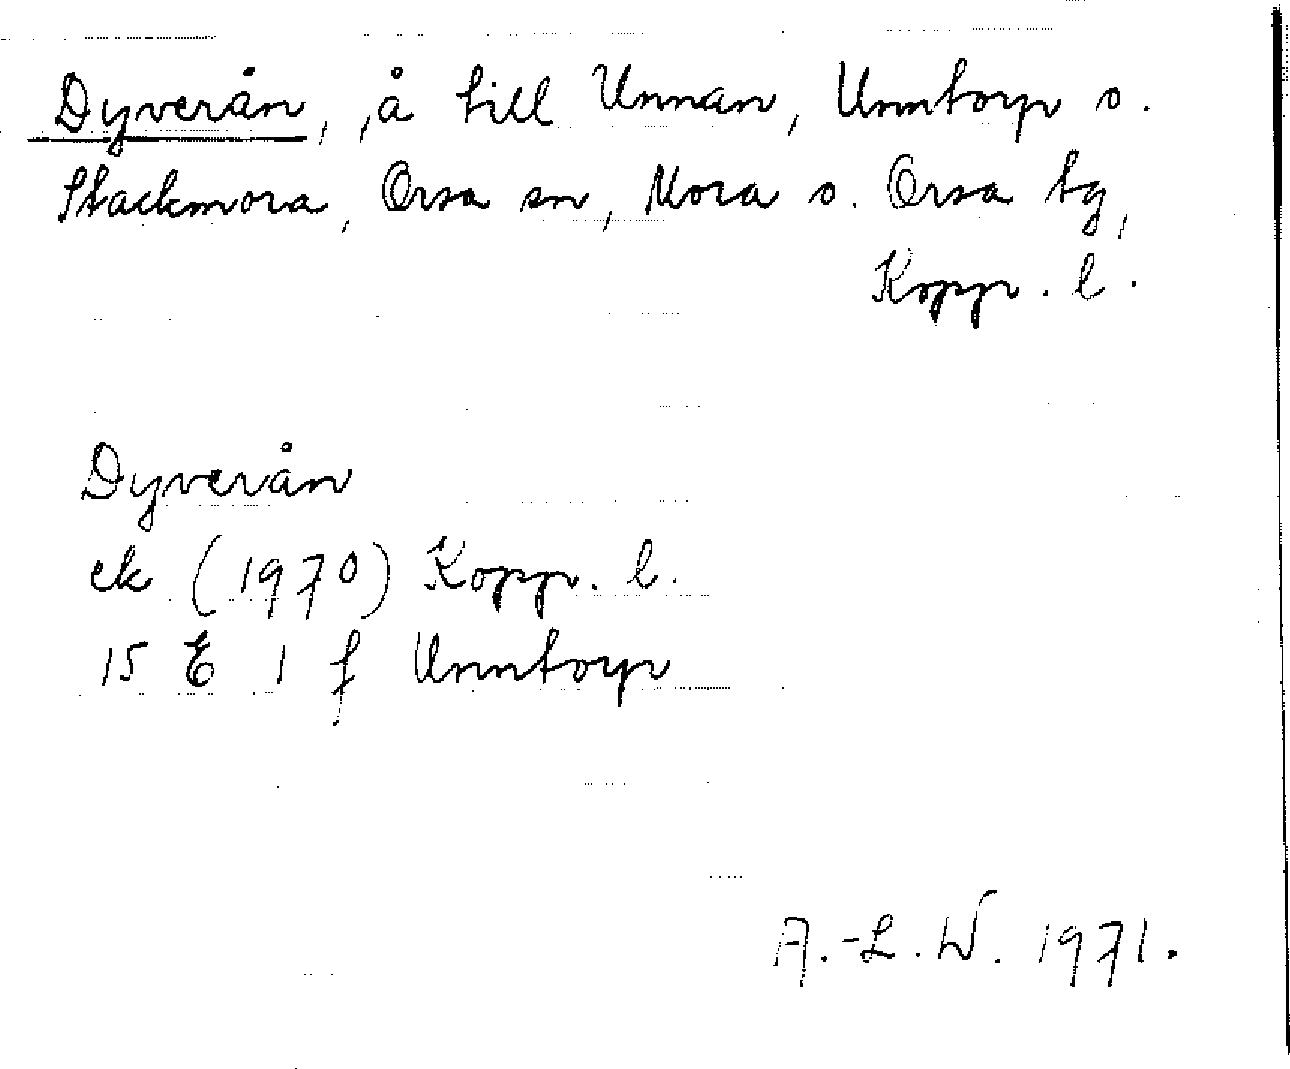 Dyverån, å till Unnan, Unntorp o.
Stackmora, Orsa sn, Mora o. Orsa tg,
Kopp. l.
Dyverån
ek (1970) Kopp. l.
15 E 1 f Unntorp
A.-L. W. 1971.